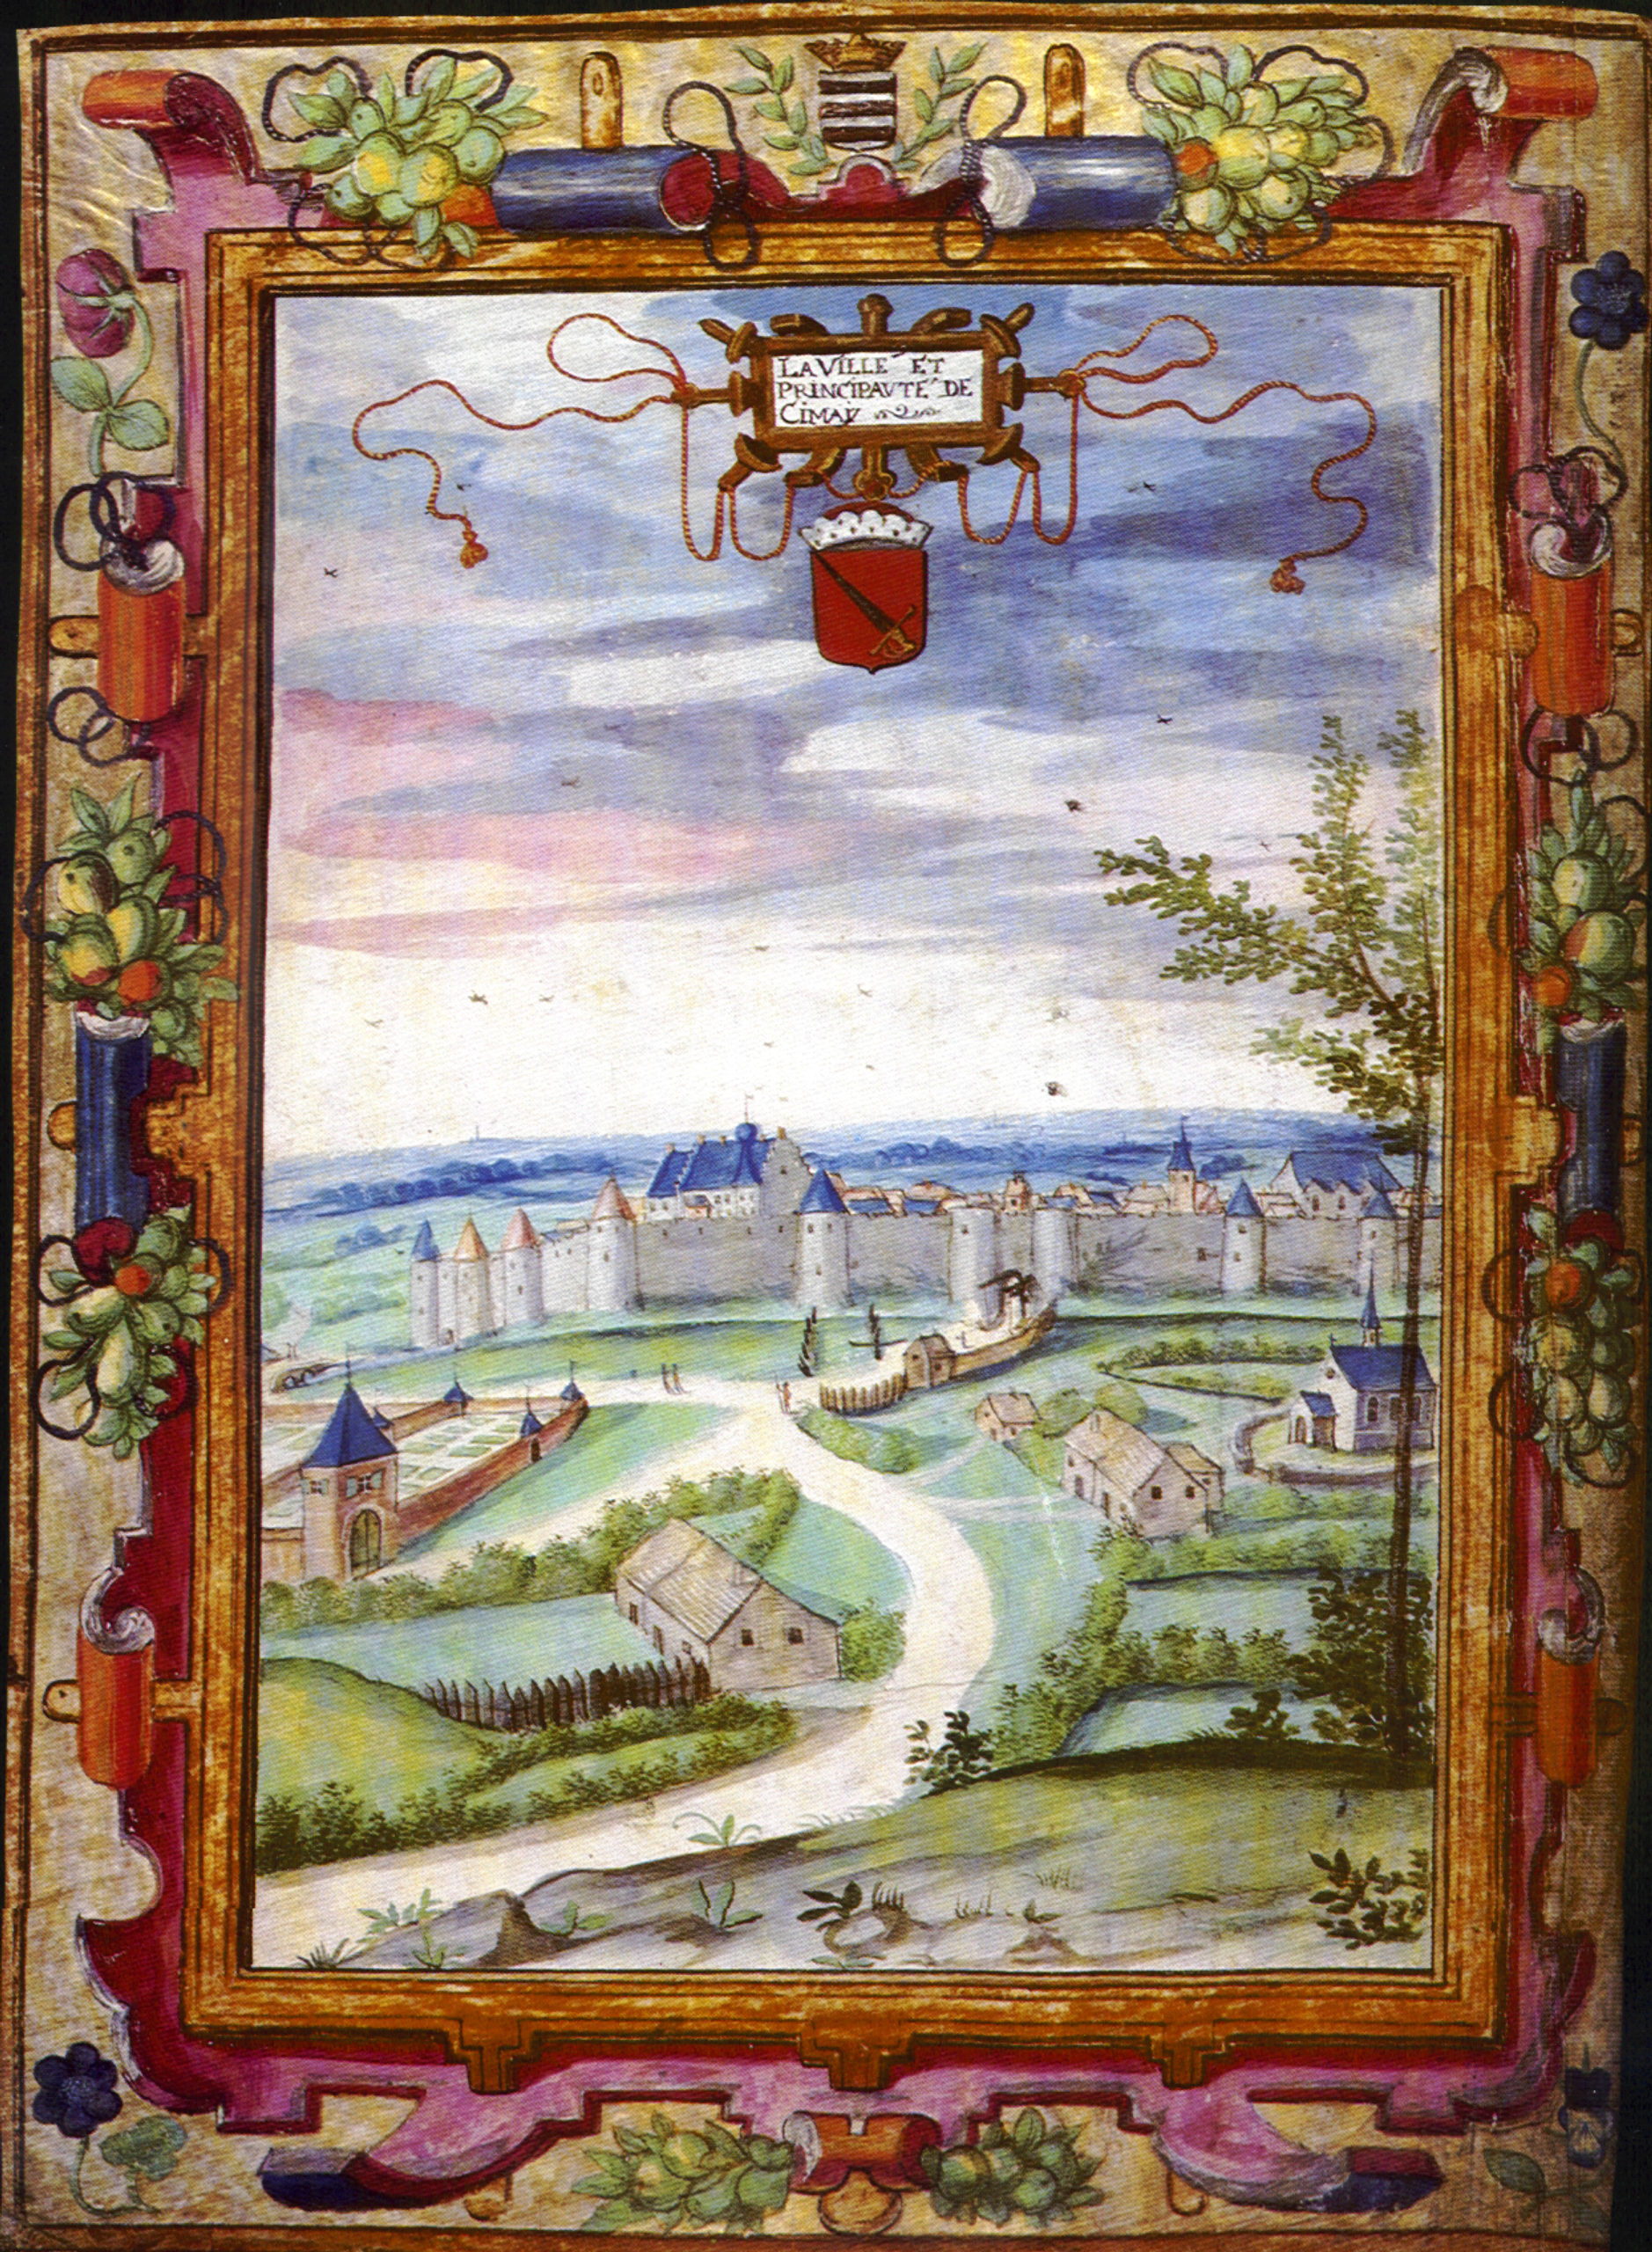 LA VILLE ET
PRINCIPAVTE DE
CIMAY